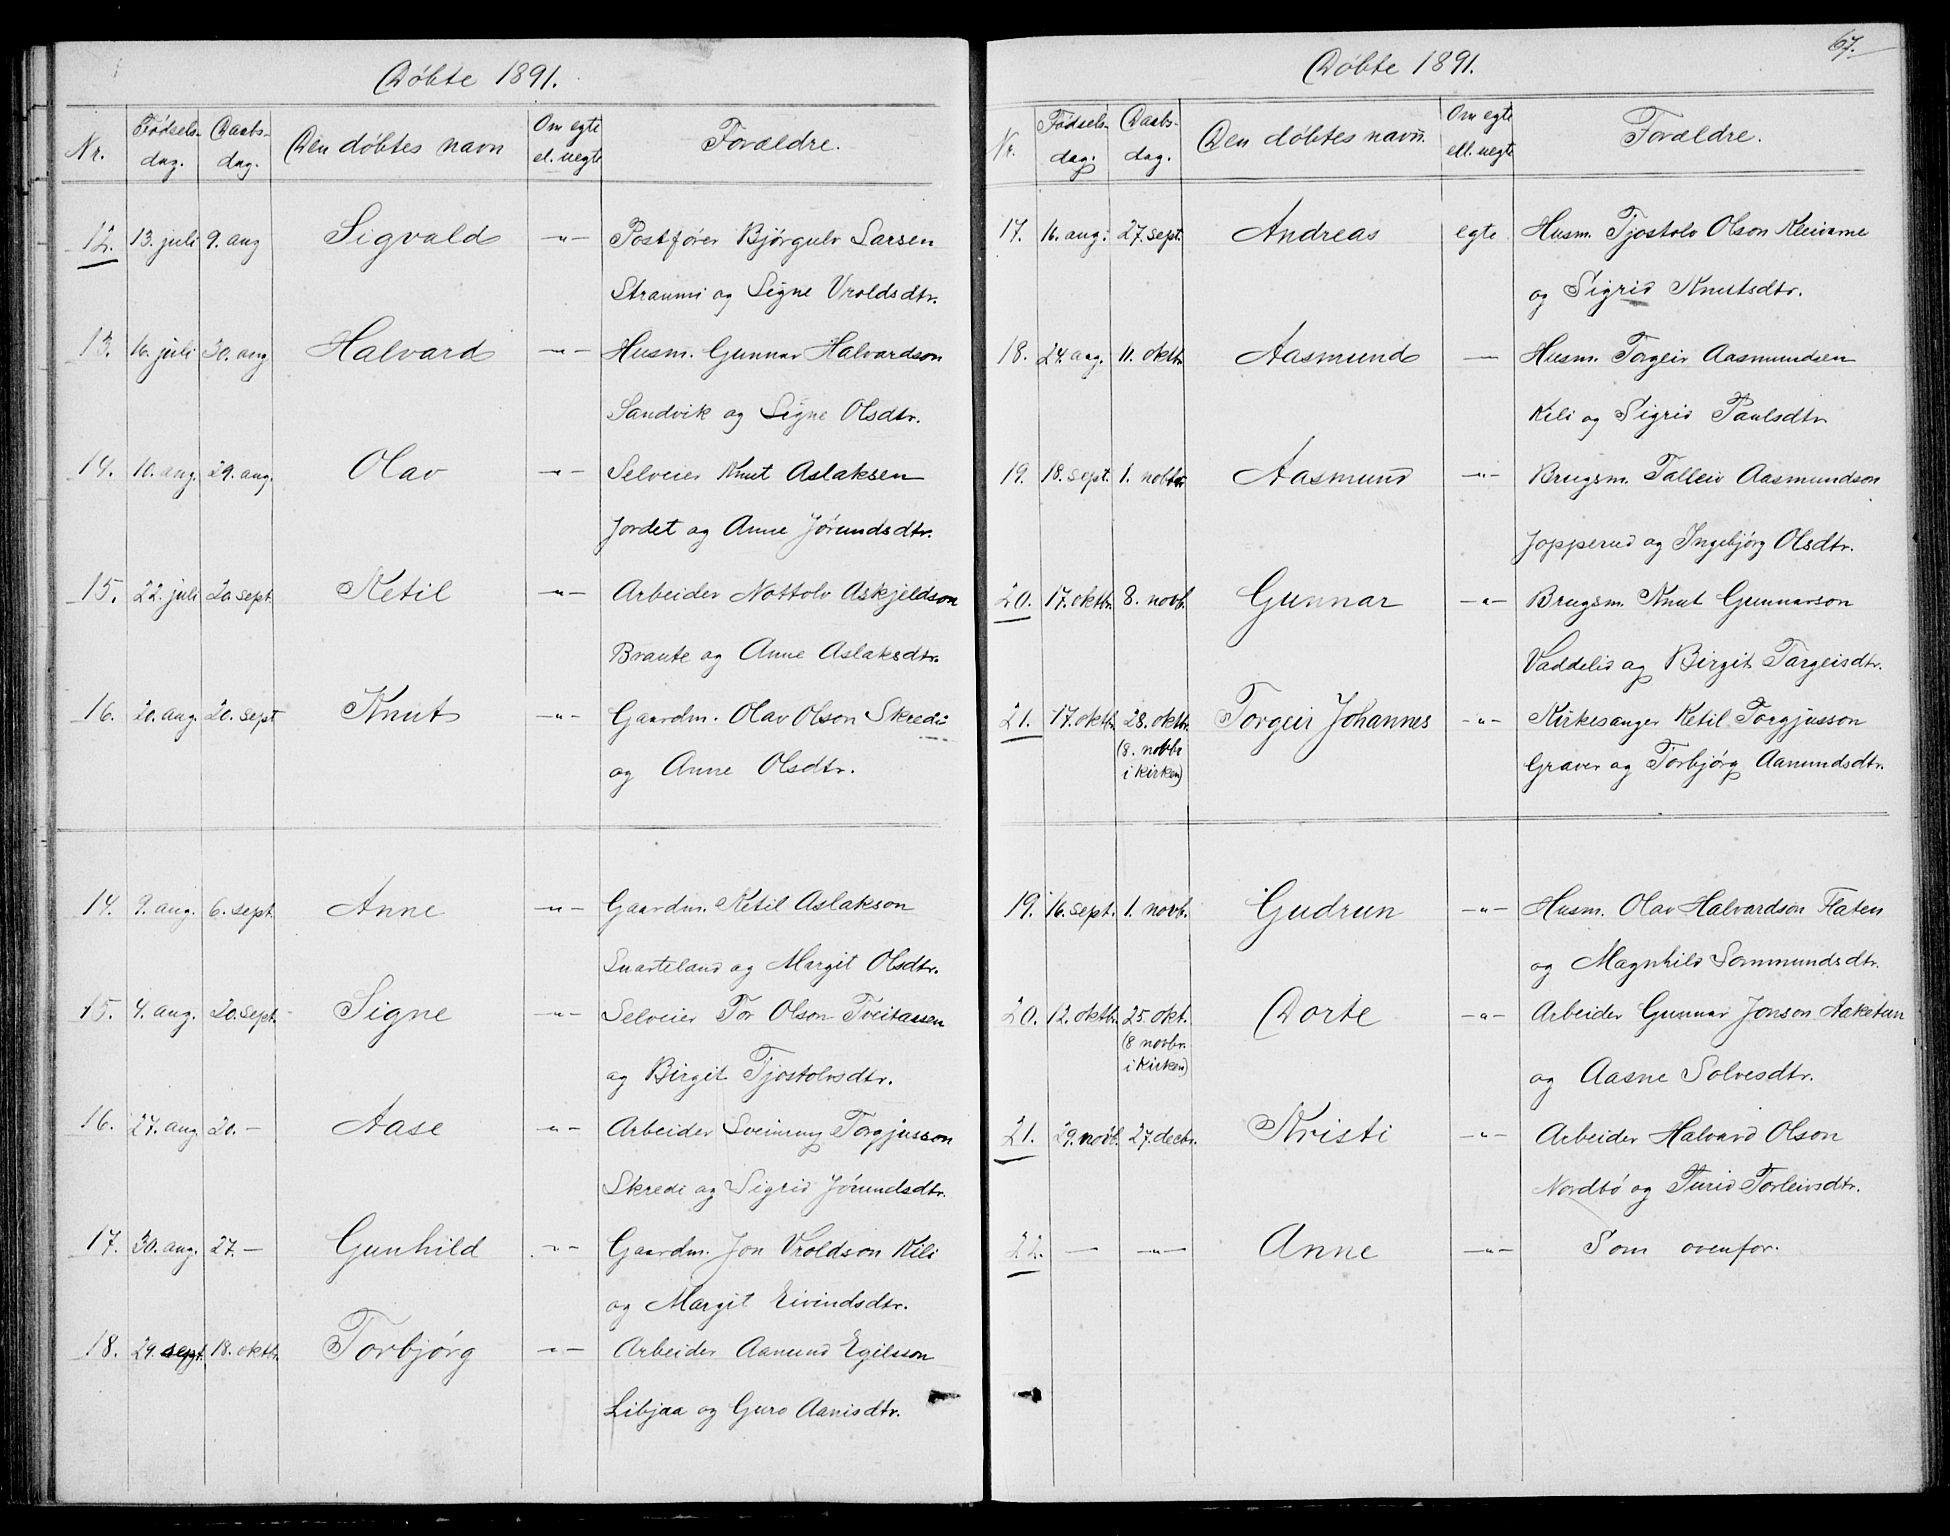 Døbte 1891.
Nr. Fødsels- dag. Daabs- dag. Den døbtes navn Om egte el. uegte Forældre.
12. 13. juli 9. aug Sigvald -"- Postfører Bjørgulv Larsen
Straumi og Signe Vroldsdtr.
13. 16. juli 30. aug Halvard -"- Husm. Gunnar Halvardson
Sandvik og Signe Olsdtr.
14. 10. aug. 29. aug. Olav -"- Selveier Knut Aslaksen
Jordet og Anne Jørundsdtr.
15. 22. juli 20. sept. Ketil -"- Arbeider Nottolv Askjeldson
Braute og Anne Aslaksdtr.
16. 20. aug. 20. sept Knut -"- Gaardm. Olav Olson Skredi
og Anne Olsdtr.
14. 9. aug. 6. sept. Anne -"- Gaardm. Ketil Aslakson
Snarteland og Margit Olsdtr.
15. 4. aug. 20. sept. Signe -"- Selveier Tor Olson Tveitaasen
og Birgit Tjostolvsdtr.
16. 27. aug 20. - Aase -"- Arbeider Sveinung Torgjusson
Skredi og Sigrid Jørundsdtr.
17. 30. aug. 27. - Gunhild -"- Gaardm. Jon Vroldson Kili
og Margit Eivindsdtr.
18. 29. sept. 18. oktbr. Torbjørg -"- Arbeider Aanund Egilsson
Libjaa og Guro Aanisdtr.
67.
Døbte 1891.
Nr. Fødsels- dag. Daabs- dag. Den døbtes navn. Om egte ell. uegte Forældre.
17. 16. aug. 27. sept. Andreas egte Husm. Tjostolv Olson Kleivarne
og Sigrid Knutsdtr.
18. 24. aug. 11. oktbr Aasmund — Husm. Torgeir Aasmundsen
Kili og Sigrid Paulsdtr
19. 18. sept. 1. novbr Aasmund -"- Brugsm. Talleiv Aasmundson
Jopperud og Ingebjørg Olsdtr.
20. 17. oktbr. 8. novb. Gunnar -"- Brugsm. Knut Gunnarson
Vaddelid og Birgit Targeisdtr.
21. 17. oktbr. 28. oktbr. Torgeir Johannes -"- Kirkesanger Ketil Torgjusson
(8. novbr
i kirken) Graver og Torbjørg Aanundsdtr.
19. 16. sept. 1. novb. Gudrun -"- Husm. Olav Halvardson Flaten
og Magnhild Sommundsdtr.
20. 12. oktbr. 25. okt. Dorte -"- Arbeider Gunnar Jonson Aaketun
(8 novbr.
i kirken) og Aasne Solvesdtr.
21. 29. novb. 27. decbr. Kristi -"- Arbeider Halvard Olson
Nordbø og Turid Torleivsdtr.
22. — -"- Anne -"- Som ovenfor.